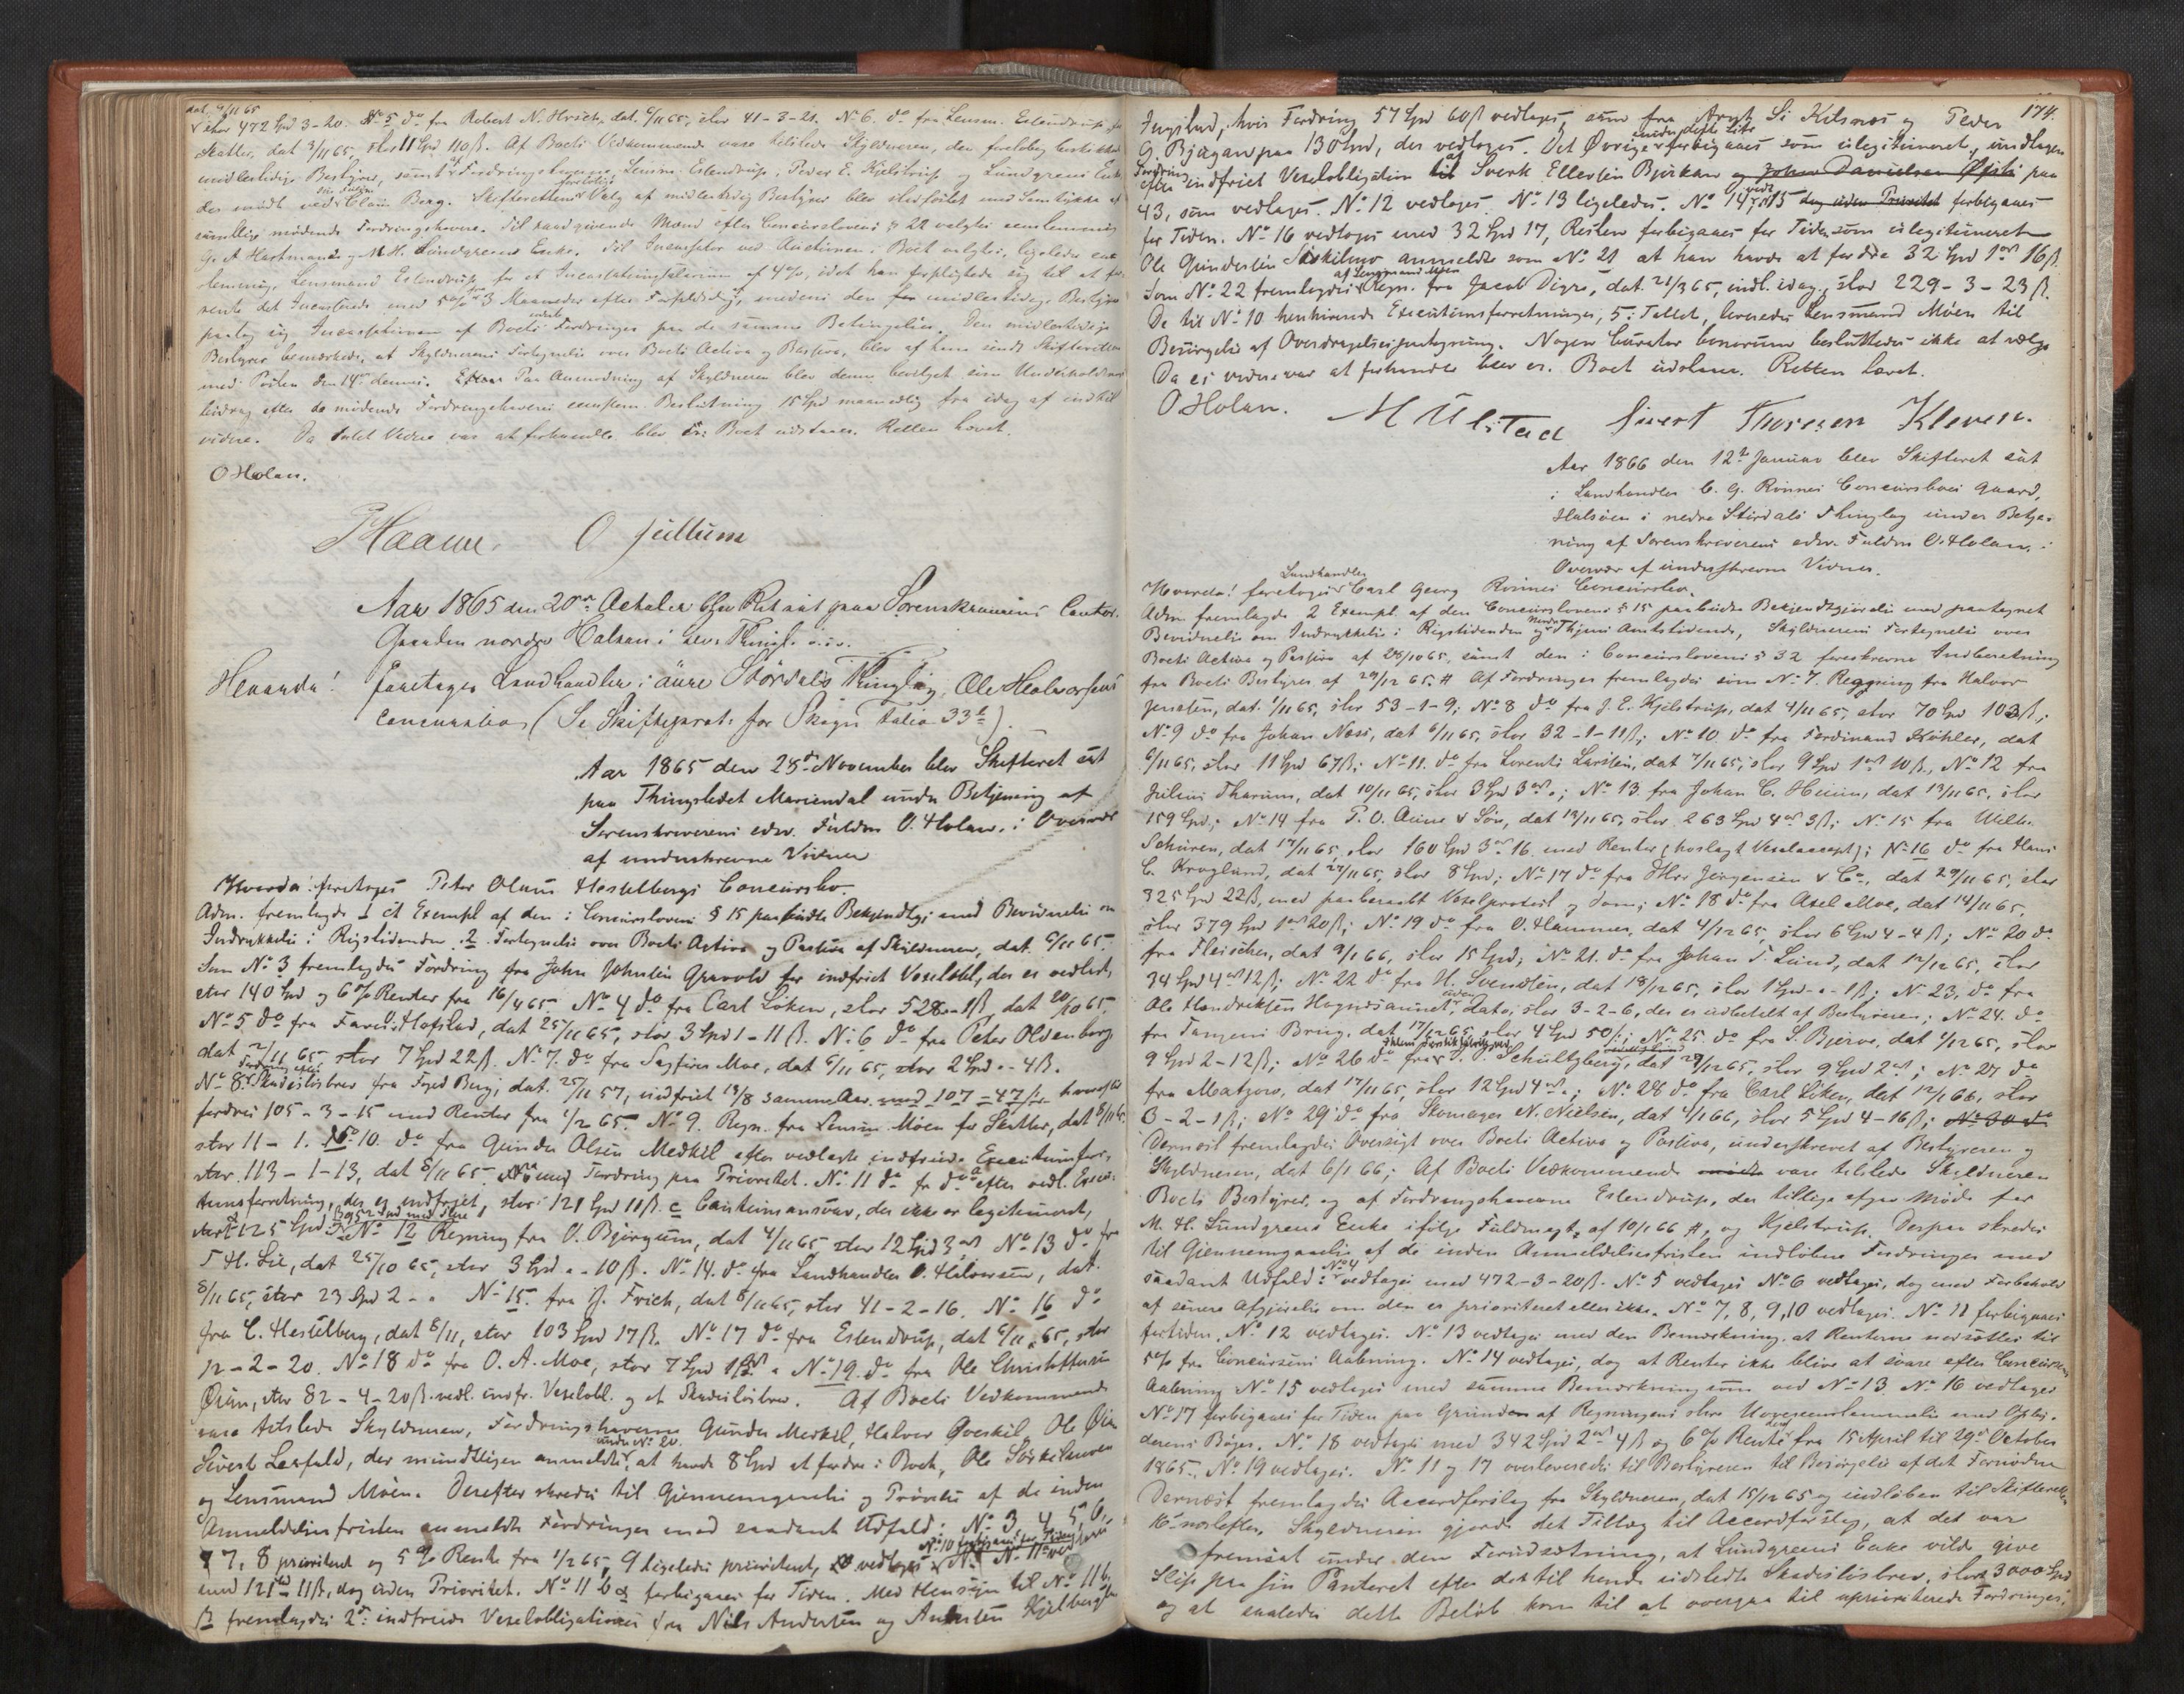 dat. 9/11 65
stor 472 Spd 3-20. No 5 do fra Robert N. Hrich, dat. 6/11 65, stor 41-3-21. No 6. do fra Lensm. Eslendrup for
Skatter, dat 3/11 65, stor 11 Spd 110 ß. Af Boets Vedkommende vare tilstede Skyldneren, den foreløbig beskikkede
midlertidige Bestyrer, samt af Fordringshaverne, Lensm. Eslendrup, Peder E. Kjelstrup og Lundgrens Enke
der mødte ved sin Fuldm. Claus Berg. Skifterettens foreløbige Valg af midlertidig Bestyrer blev stadfæstet med Samtykke af
samtlige mødende Fordringshavere. Til raadgivende Mænd efter Concurslovens § 22 valgtes eenstemmig
G. A Hartmann og M. H. Lundgreens Enke. Til Incassator ved Auctionen i Boet valgtes, ligeledes een-
stemmig, Lensmand Eslendrup, for et Incassationssalarium af 4%, idet han forpligtede sig til at for-
rente det Incasserede med 5% fra 3 Maaneder efter Forfaldstid, medens den midlertidige Bestyrer
paatog sig Incassationen af Boets andre Fordringer paa de samme Betingelser. Den midlertidige
Bestyrer bemærkede, at Skyldnerens Fortegnelse over Boets Activa og Passiva, blev af ham sendt Skifteretten
med Posten den 14de dennes. Paa Anmodning af Skyldneren blev denne bevilget som Underholdnings-
bidrag efter de mødende Fordringshaveres eenstem. Beslutning 15 Spd maanedlig fra idag af indtil
videre. Da Intet Videre var at forhandle blev Boet udstaaet. Retten hævet.
O Holan.
PHaave. O Jullum
Aar 1865 den 20de October blev Ret sat paa Sorenskriverens Contor.
Gaarden nordre Halsan i Levr. Thingl. o.s.v.
Hvorda! foretoges Landhandler i øvre Størdals Thinglag, Ole Halvorsens
Concursbo (Se Skifteprot. for Skogn Folio 33 b).
Aar 1865 den 28de November blev Skifteret sat
paa Thingstedet Mariendal under Betjening af
Sorenskriverens edsv. Fuldm O. Holan, i Overvær
af underskrevne Vidner
Hvorda! foretoges Peter Olaus Hesselbergs Concursbo.
Adm. fremlagde 1 et Exempl af den i Concursloven § 15 paabudte Bekjendtgj. med Bevidnelse om
Indrykkelse i Rigstidenden. 2. Fortegnelse over Boets Activa og Passiva af Skyldneren, dat. 6/11 65.
Som No 3 fremlagdes Fordring fra John Johnsen Gravold for indfriet Vexelobl, der er vedlagt,
stor 140 Spd og 6% Renter fra 16/4 65. No 4 do fra Carl Löken, stor 528-"-1ß, dat 20/10 65.
No 5 do fra Hofstad, dat 25/11 65, stor 3 Spd 1-11 ß. No 6 do fra Peter Oldenborg,
dat 2/11 65 stor 7 Spd 22 ß. No 7. do fra Sagfører Moe, dat 6/11 65, stor 2 Spd "-4 ß.
No 8. Fordring efter Skadesløsbrev fra Berg, dat. 25/11 57, indfriet 13/8 samme Aar hvorefter
fordres 105-3-15 med Renter fra 1/2 65. No 9. Regn. fra Lensm. Möen for Skatter, dat 8/11 65,
stor 11-1. No 10. do fra Gunder Olsen Medkil efter vedlagte indfriede Executionsfor.
stor 113-1-13, dat 8/11 65 Fordring paa Prioritet. No 11 do fr do efter vedl. Execu-
tionsforretning, der er indfriet, stor 121 Spd 11 ß. c Cautionsansvar, der ikke er legitimeret,
stort 125 Spd. No 12 Regning fra O. Bjørgum, dat 4/11 65 stor 12 Spd 3 ort No 13 do fra
T. H. Lie, dat 25/10 65, stor 3 Spd "-10 ß. No 14. do fra Landhandler O. Halvorsen, dat.
8/11 65, stor 23 Spd 2-" No 15. fra J. Frich, dat 8/11 65, stor 41-2-16. No 16 do
fra C. Hesselberg, dat 8/11, stor 103 Spd 17 ß. No 17 do fra Eslendrup, dat 6/11 65, stor
12-2-20. No 18 do fra O. A. Moe, stor 7 Spd No 19. do fra Ole Christoffersen
Øien, stor 82-4-20 ß. vedl. indfr. Vexelobl. og et Skadesløsbrev. Af Boets Vedkommende
vare tilstede Skyldneren, Fordringshaverne Gunder Medkil, Halvor Gveskil, Ole Øien
Sivert Leefald, der mundtligen anmeldte under No 20 at havde 8 Spd at fordre i Boet, Ole
og Lensmand Möen. Derefter skredes til Gjennemgaaelse og Prøvelse af de inden
Anmeldelsesfristen anmeldte Fordringer med saadant Udfald: No 3, 4, 5, 6,
7, 8 prioriteret og 5% Rente fra 1/2 65, 9 ligeledes prioriteret, vedtages No 10 forbigaaes for Tiden No 11 vedtages
med 121 Spd 11 ß, dog uden Prioritet. No 11 b forbigaaes for Tiden. Med Hensyn til No 11 b,
fremlagdes 2de indfriede Vexelobligationer fra Nils Andersen og Andersen Kjelberg
174.
Ingstad, hvis Fordring 57 Spd 60 ß vedtages, samt fra Arnt Si Kilsnes og Peder
G. Bjøgan paa 130 Spd, der vedtages. Det Øvrige under dette Litr forbigaaes som ulegitimeret, undtagen
Fordring efter indfriet Vexelobligation af Sverk Ellevsen Bjørkan og John Danielsen paa
43, som vedtages. No 12 vedtages. No 13 ligeledes. No 14 vedt. No 15 dog uden Prioritet forbigaaes
for Tiden. No 16 vedtages med 32 Spd 17, Resten forbigaaes for Tiden som ulegitimeret
Ole Gundersen anmeldte som No 21 at han havde at fordre 32 Spd 1 ort 16 ß
Som No 22 fremlagdes af Lensmand Möen Regn. fra Jacob Digre, dat. 21/3 65, indl. idag, stor 229-3-23 ß.
De til No 10 henhørende Executionsforretninger, 5 i Tallet, leveredes Lensmand Möen til
Besørgelse af Overdragelsespaategning. Nogen Curator bonorum besluttedes ikke at vælge
Da ei videre var at forhandle blev er. Boet udstaaet. Retten hævet.
O Holan. M Ulstad Sivert Thoresen Kleven.
Aar 1866 den 12te Januar blev Skifteret sat
i Landhandler C. G. Rønnes Concursboes Gaard,
Halsøen i nedre Størdals Thinglag under Betje-
ning af Sorenskriverens edsv. Fuldm O. Holan, i
Overvær af underskrevne Vidner.
Hvorda! foretoges Landhandler Carl Georg Rønnes Concursbo.
Adm fremlagde 2 Exempl. af den Concurslovens § 15 paabudte Bekjendtgjørelse med paategnet
Bevidnelse om Indrykkelse i Rigstidenden og Nordre Thjems Amtstidende, Skyldnerens Fortegnelse over
Boets Activa og Passiva af 28/10 65, samt den i Concurslovens § 32 foreskrevne Indberetning
fra Boets Bestyrer af 29/12 65. # Af Fordringer fremlagdes som No 7. Regning fra Halvor
Jenssen, dat. 1/11 65, stor 53-1-9; No 8 do fra J. E. Kjelstrup, dat 4/11 65, stor 70 Spd 103 ß;
No 9 do fra Johan Næss, dat 6/11 65, stor 32-1-11 ß; No 10. do fra Ferdinand Köhler, dat
6/11 65, stor 11 Spd 67 ß; No 11. do fra Lorents Larssen, dat 7/11 65, stor 9 Spd 1 ort 10 ß, No 12 fra
Julius Tharum, dat 10/11 65, stor 3 Spd 3 ort "; No 13 fra Johan C. Heum, dat 13/11 65, stor
159 Spd; No 14 fra P. O. Aune & Søn, dat 13/11 65, stor 263 Spd 4 ort 3 ß; No 15 fra Wilh.
Schüren, dat 17/11 65, stor 160 Spd 3 ort 16. med Renter (hoslagt Vexelaccept); No 16 do fra Hans
C. Krogland, dat 27/11 65, stor 8 Spd; No 17 do fra Hrr Jørgensen & Co, dat 29/11 65, stor
325 Spd 22 ß, med paaberaabt Vexelprotest og Dom; No 18 do fra Axel Moe, dat 14/11 65,
stor 379 Spd 1 ort 20 ß; No 19 do fra O. Hammer, dat 4/12 65, stor 6 Spd 4-4 ß; No 20 do
fra Fleischer, dat 9/1 66, stor 15 Spd; No 21. do fra Johan F. Lund, dat 12/12 65, stor
34 Spd 4 ort 12 ß; No 22 do fra H. Svendsen, dat 18/12 65, stor 1 Spd-"-1 ß; No 23, do fra
Ole Hendriksen uden dato, stor 3-2-6, der er udbetalt af Bestyreren; No 24. do
fra Brug, dat 17/12 65, stor 4 Spd 50 ß; No 25. do fra S. Bjerve, dat 1/12 65, stor
9 Spd 2-12 ß; No 26 do fra Schultzberg, dat 29/12 65, stor 9 Spd 2 ort; No 27 do
fra Matzow, dat 17/11 65, stor 12 Spd 4 ort "; No 28 do fra Carl Löken, dat 12/1 66, stor
3-2-1 ß; No 29 do fra Skomager N. Nielsen, dat 4/1 66, stor 5 Spd 4-16 ß; No 30 do
Dernæst fremlagdes Oversigt over Boets Activa og Passiva, underskrevet af Bestyreren og
Skyldneren, dat 6/1 66; Af Boets Vedkommende vare tilstede Skyldneren
Boets Bestyrer, og af Fordringshaverne Eslendrup, der tillige afgav Møde for
M. H. Lundgrens Enke ifølge Fuldmagt af 10/1 66 #, og Kjelstrup. Derpaa skredes
til Gjennemgaaelse af de inden Anmeldelsesfristen indløbne Fordringer med
saadant Udfald: No 4 vedtages med 472-3-20 ß. No 5 vedtages No 6 vedtages, dog med Forbehold
af senere Afgjørelse om den er prioriteret eller ikke. No 7, 8, 9, 10 vedtages. No 11 forbigaaes
fortiden. No 12 vedtages. No 13 vedtages med den Bemærkning, at Renterne nedsættes til
5% fra Concursens Aabning. No 14 vedtages, dog at Renter ikke blive at svare efter Concursens
Aabning No 15 vedtages med samme Bemærkning som ved No 13. No 16 vedtages
No 17 forbigaaes for Tiden paa Grund af Regningens store Uoverensstemmelse med Opbu-
derens Bøger. No 18 vedtages med 342 Spd 2 ort 4 ß og 6% Rente fra 15 April til 29de October
1865. No 19 vedtages. No 11 og 17 overleveredes til Bestyreren til Besørgelse af det Fornødne
Dernæst fremlagdes Accordforslag fra Skyldneren, dat 15/12 65 og indløben til Skifteretten
16de næstefter. Skyldneren gjorde det Tillæg til Accordforslag, at det var
fremsat under den Forudsætning, at Lundgreens Enke vilde give
Slip paa sin Panteret efter det til hende udstedte Skadesløsbrev, stort 3000 Spd
og at saaledes dette Beløb kom til at overgaa til uprioriterede Fordringer.